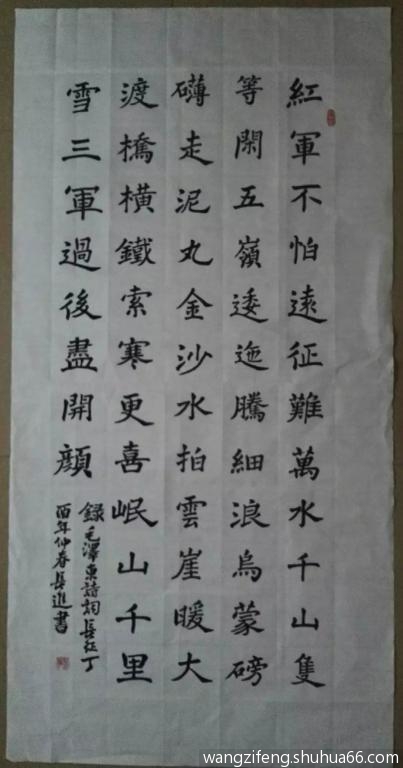 紅軍不怕遠征難萬水千山隻
等閑五嶺逶迤騰細浪烏蒙磅
礴走泥丸金沙水拍雲崖暖大
渡橋橫鐵索寒更喜岷山千里
雪三軍過後盡開顏
錄毛澤東詩詞長征丁
酉年仲春長進書
wangzifeng.shuhua66.com